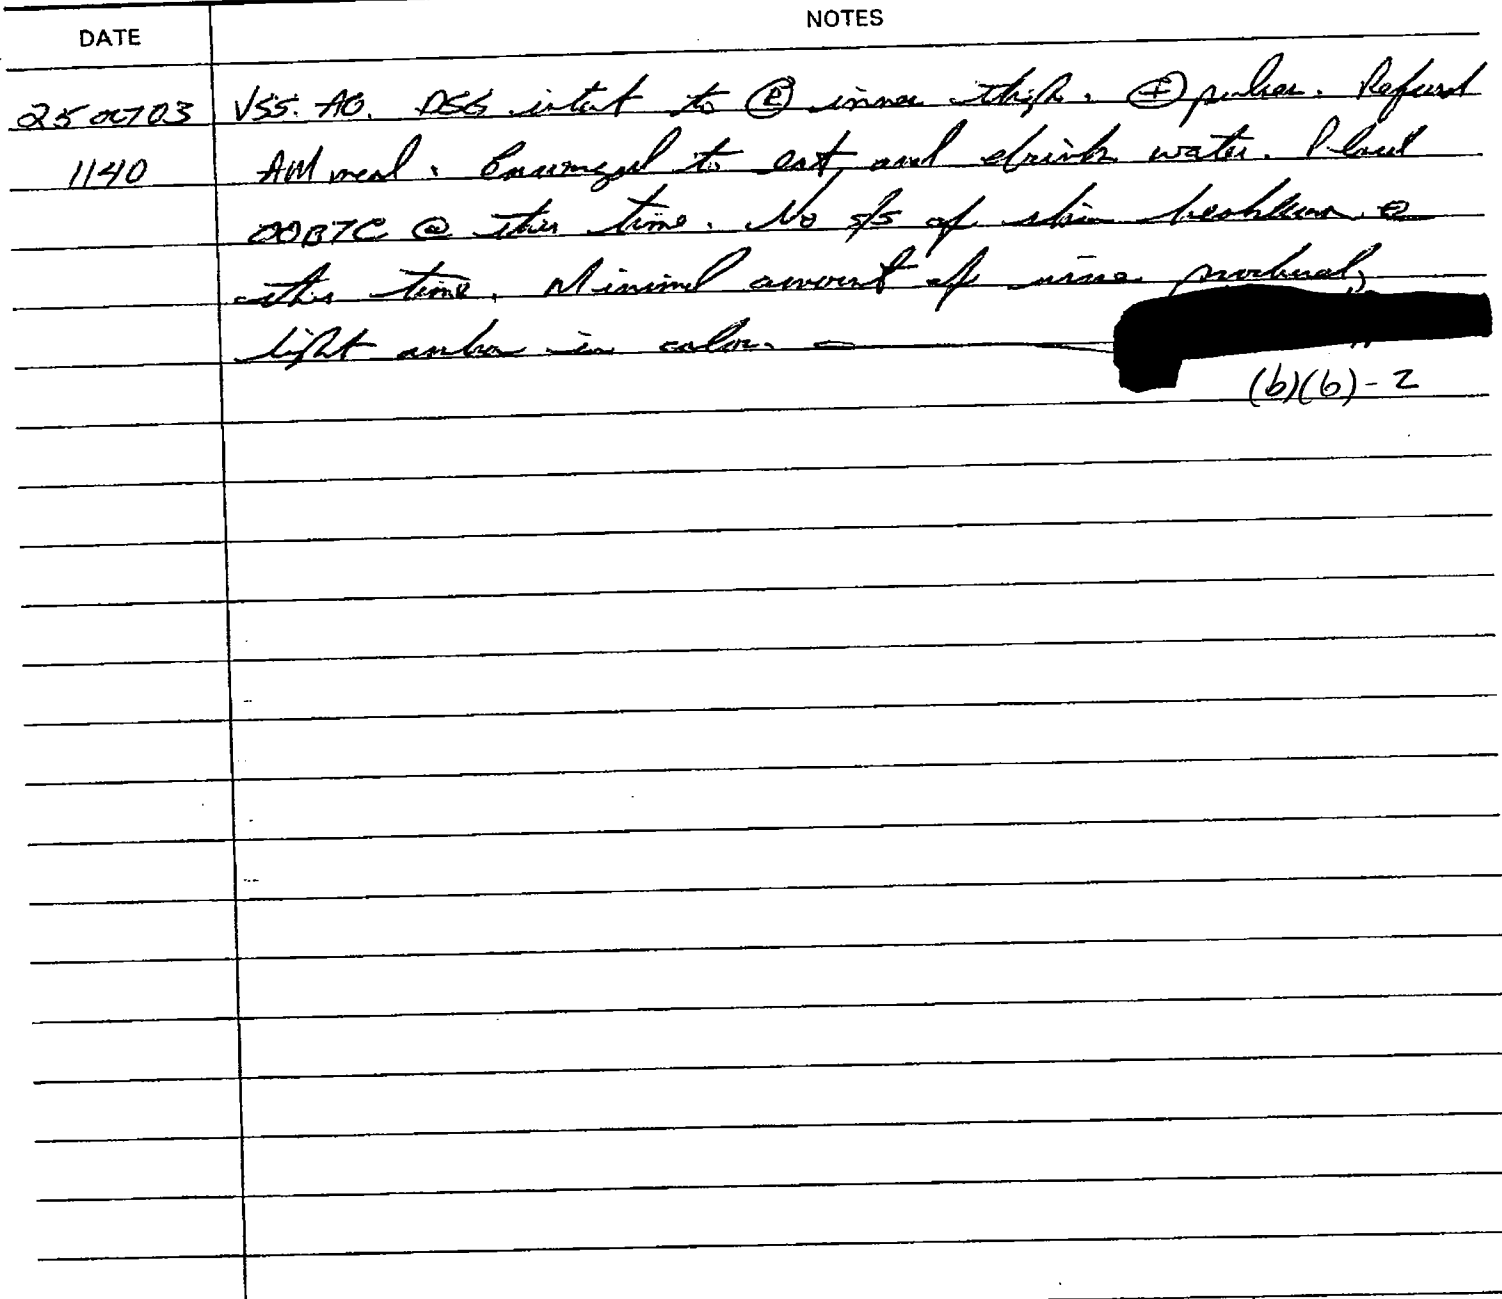 DATE
NOTES
25 OCT 03 VSS. AO. DSG intact to Ⓡ inner thigh. ⊕ pulses. Refused
1140 AM meal. Encouraged to eat and drink water. Placed
OOBTC @ this time. No s/s of skin breakdown @
this time. Minimal amount of urine produced,
light amber in color.
(b)(6)-2